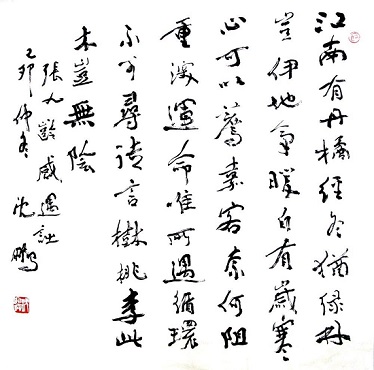 江南有丹橘經冬猶綠林
豈伊地氣暖自有歲寒
心可以薦嘉客奈何阻
重深運命唯所遇循環
不可尋徒言樹桃李此
木豈無陰
張九齡感遇詩
己卯仲冬沈鵬